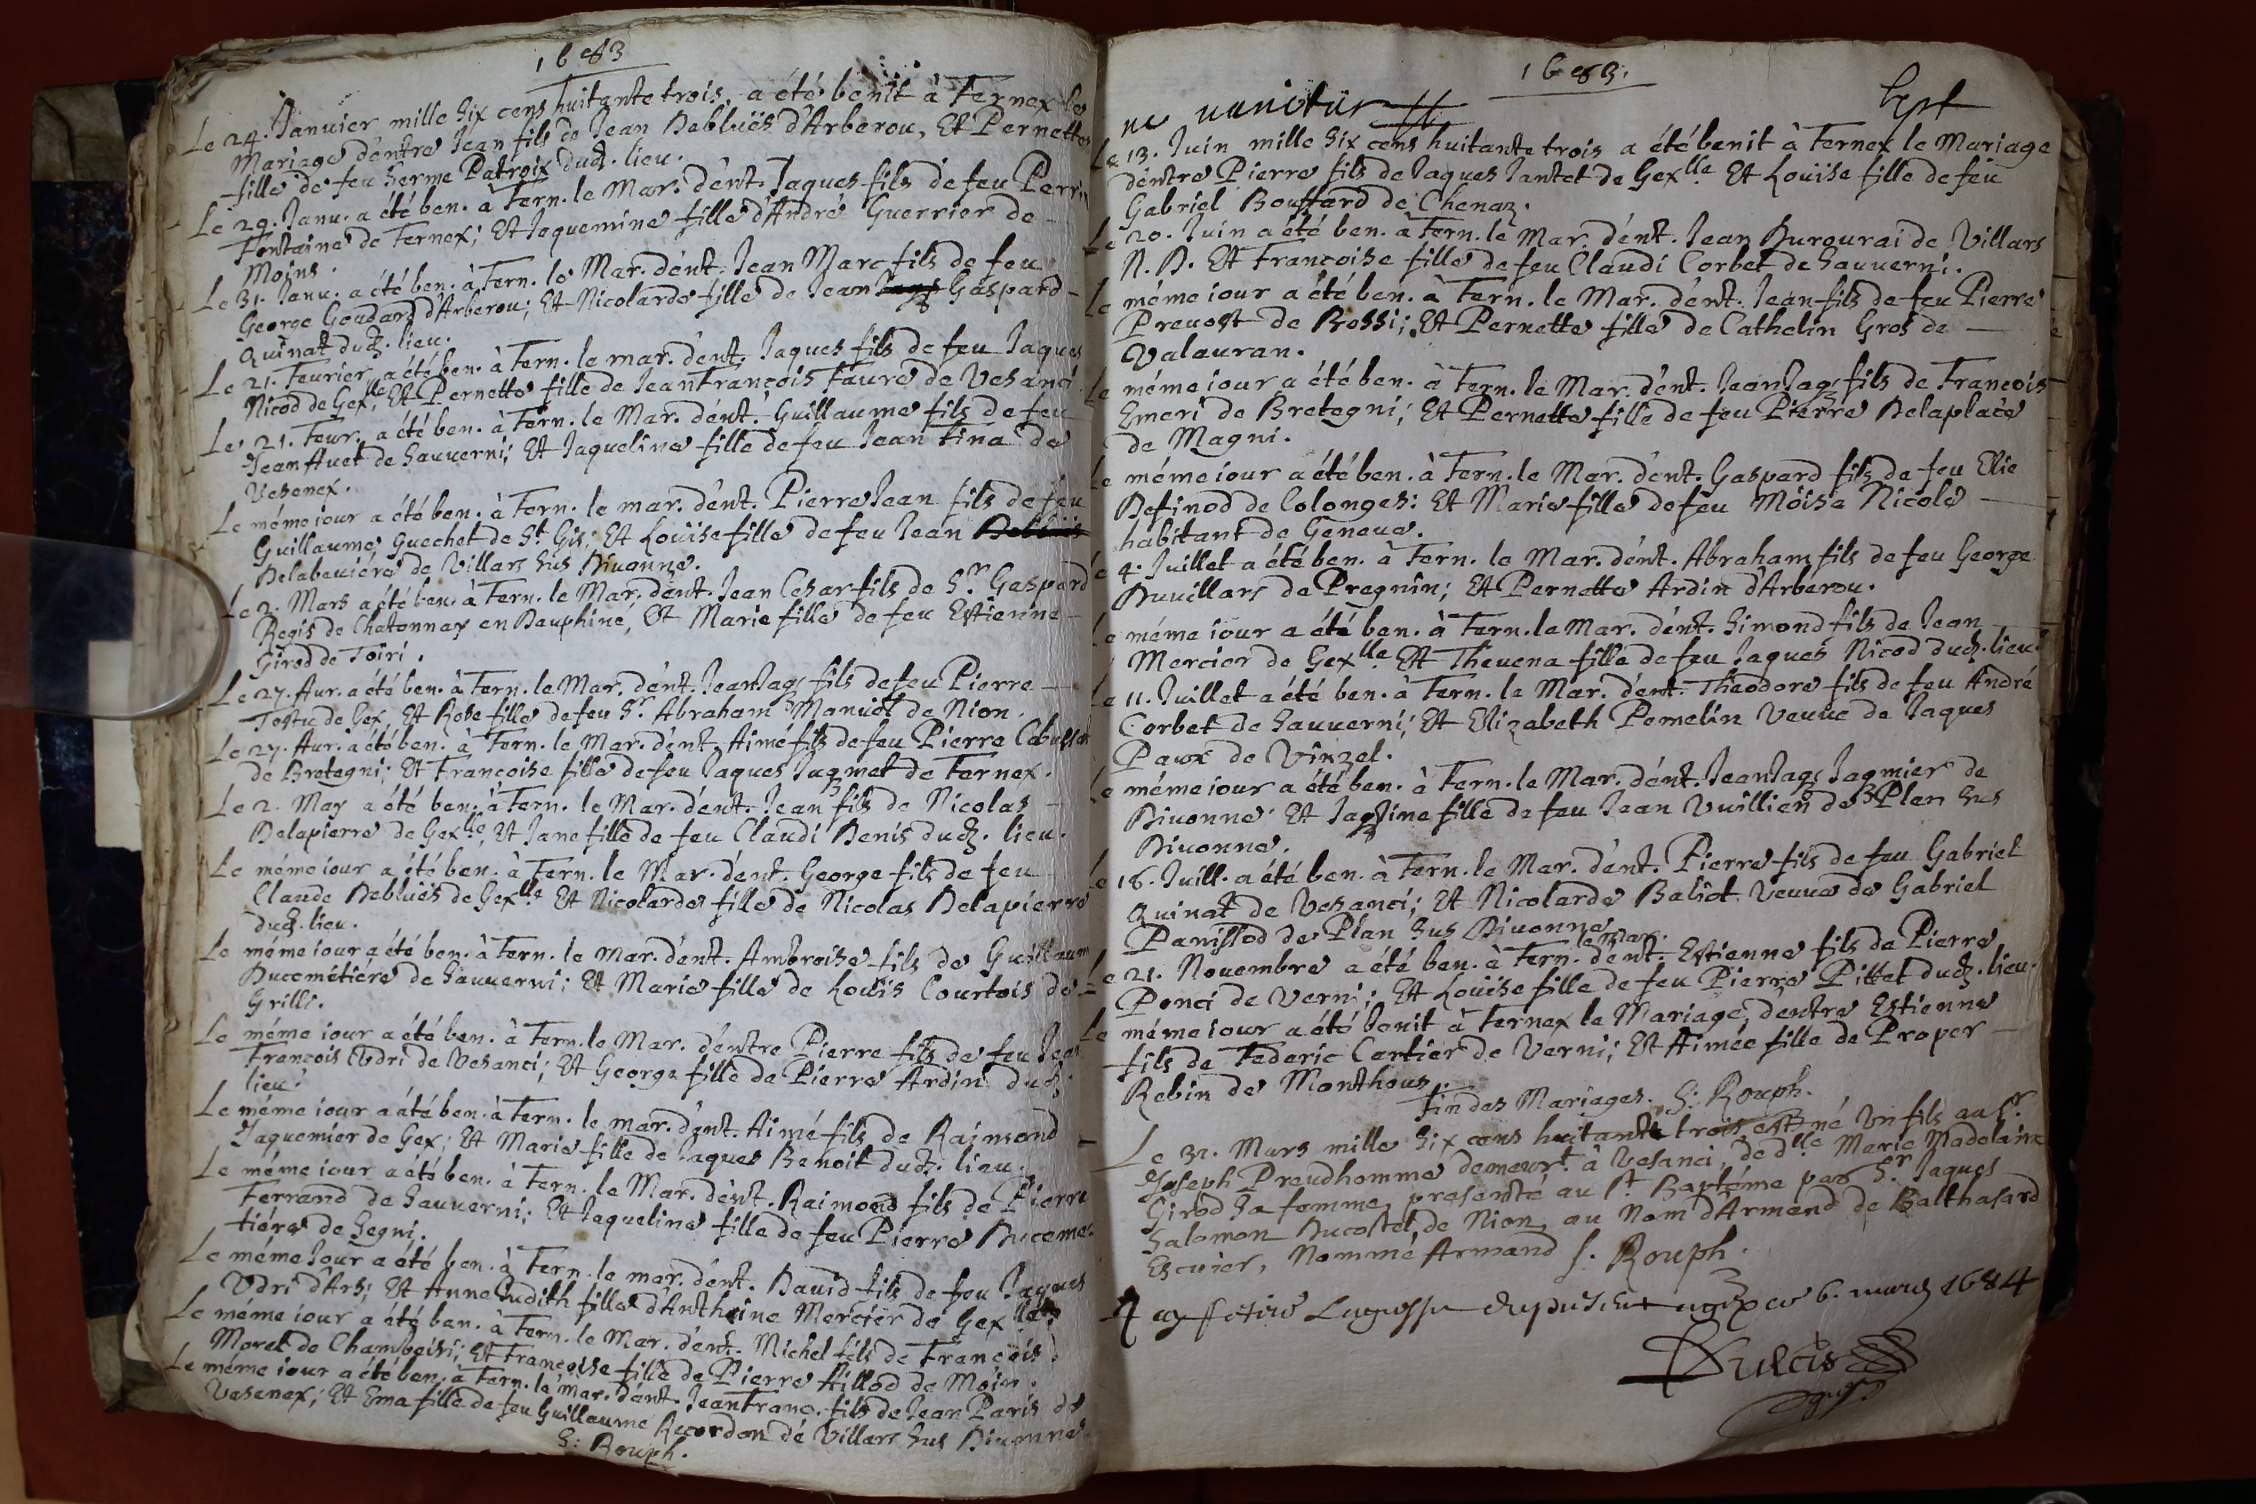 1683
Le 24. Janvier mille Six cens huitante trois, a été benit à Fernex le
Mariage d'entre Jean fils de Jean Debluës d'Arberou, Et Pernette
fille de feu Serme Patroix dud. lieu.
Le 29. Janu. a été ben. à Fern. le Mar. d'ent. Jaques fils de feu Perrin
Fontaine de Fernex; Et Jaquemine fille d'André Guerrier de
Moins.
Le 31. Janu. a été ben. à Fern. le Mar. d'ent. Jean Marc fils de feu
George Goudard d'Arberou; Et Nicolarde fille de Jean Gaspard
Quinat dud. lieu.
Le 21. Feurier a été ben. à Fern. le mar. d'ent. Jaques fils de feu Jaques
Nicod de Gex lle; Et Pernette fille de Jean François Faure de Vesanci.
Le 21. Feur. a été ben. à Fern. le Mar. d'ent. Guillaume fils de feu
Jean Auet de Sauuerni; Et Jaqueline fille de feu Jean Fina de
Vesenex.
Le méme iour a été ben. à Fern. le mar. d'ent. Pierre Jean fils de feu
Guillaume Guechet de St Gis; Et Louise fille de feu Jean Debluës
Delabeuiére de Villars sus Diuonne.
Le 2. Mars a été ben. à Fern. le Mar. d'ent. Jean Cesar fils de Sr. Gaspard
Regis de Chatonnay en Dauphiné, Et Marie fille de feu Estienne
Girod de Toiri.
Le 27. Aur. a été ben. à Fern. le Mar. d'ent. Jean Jaq. fils de feu Pierre
Tostu de Gex, Et Rose fille de feu Sr. Abraham Manuel de Nion.
Le 27. Aur. a été ben. à Fern. le Mar. d'ent. Aimé fils de feu Pierre Cabusset
de Bretegni; Et Françoise fille de feu Jaques Jaqmet de Fernex.
Le 2. May a été ben. à Fern. le Mar. d'ent. Jean fils de Nicolas
Delapierre de Gex lle, Et Jane fille de feu Claudi Denis dud. lieu.
Le méme iour a été ben. à Fern. le Mar. d'ent. George fils de feu
Claude Debluës de Gex lle Et Nicolarde fille de Nicolas Delapierre
dud. lieu.
Le méme iour a été ben. à Fern. le Mar. d'ent. Ambroise fils de Guillaume
Ducemétiére de Sauuerni; Et Marie fille de Louis Courtois de
Grilli.
Le méme iour a été ben. à Fern. le Mar. d'entre Pierre fils de feu Jean
François Vdri de Vesanci; Et George fille de Pierre Ardin dud.
lieu.
Le méme iour a été ben. à Fern. le mar. d'ent. Aimé fils de Raimond
Jaquemier de Gex; Et Marie fille de Jaques Benoit dud. lieu.
Le méme iour a été ben. à Fern. le Mar. d'ent. Raimond fils de Pierre
Ferrand de Sauuerni; Et Jaqueline fille de feu Pierre Duceme-
tiére de Segni.
Le méme Iour a été ben. à Fern. le mar. d'ent. Dauid fils de feu Jaques
Vdri d'Ars; Et Anne Judith fille d'Anthoine Mercier de Gex lle
Le méme iour a été ben. à Fern. le Mar. d'ent. Michel fils de François
Morel de Chamboisi; Et Françoise fille de Pierre Fillod de Moin.
Le méme iour a été ben. à Fern. le mar. d'ent. Jean Franç. fils de Jean Paris de
Vesenex; Et Ema fille de feu Guillaume Recordon de Villars sus Diuonne
S: Rouph.
1683.
ne uarietur
Le 13. Juin mille Six cens huitante trois a été benit à Fernex le Mariage
d'entre Pierre fils de Jaques Jantet de Gex lle Et Louïse fille de feu
Gabriel Bouffard de Chenaz.
Le 20. Juin a été ben. à Fern. le Mar. d'ent. Jean Durourai de Villars
N. D. Et Françoise fille de feu Claudi Corbet de Sauuerni.
Le méme iour a été ben. à Fern. le Mar. d'ent. Jean fils de feu Pierre
Preuost de Rossi; Et Pernette fille de Cathelin Gros de
Valauran.
Le méme iour a été ben. à Fern. le Mar. d'ent. Jean Jaq. fils de François
Emeri de Bretegni; Et Pernette fille de feu Pierre Delaplace
de Magni.
Le méme iour a été ben. à Fern. le Mar. d'ent. Gaspard fils de feu Elie
Depinod de Colonges: Et Marie fille de feu Moïse Nicole
habitant de Geneue.
Le 4. Juillet a été ben. à Fern. le Mar. d'ent. Abraham fils de feu George
Duuillars de Pregnin; Et Pernette Ardin d'Arberou.
Le méme iour a été ben. à Fern. le Mar. d'ent. Simond fils de Jean
Mercier de Gex lle Et Theuena fille de feu Jaques Nicod dud. lieu.
Le 11. Juillet a été ben. à Fern. le Mar. d'ent. Theodore fils de feu André
Corbet de Sauuerni; Et Elizabeth Pomelin Veuue de Jaques
Paux de Vinzel.
Le méme iour a été ben. à Fern. le Mar. d'ent. Jean Jaq. Jaqmier de
Diuonne Et Jaqline fille de feu Jean Vuillien de Plan sus
Diuonne.
Le 18. Juill. a été ben. à Fern. le Mar. d'ent. Pierre fils de feu Gabriel
Quinat de Vesanci; Et Nicolarde Baliot Veuue de Gabriel
Panissod de Plan sus Diuonne.
Le 21. Novembre a été ben. à Fern. le Mar. d'ent. Estienne fils de Pierre
Ponci de Verni; Et Louïse fille de feu Pierre Pittet dud. lieu.
Le méme iour a été benit à Fernex le Mariage d'entre Estienne
fils de Federic Cartier de Verni; Et Aimée fille de Proper
Robin de Monthous.
Fin des Mariages. S: Rouph.
Le 31. Mars mille Six cens huitante trois est né Vn fils au Sr.
Joseph Preudhomme demeurt. à Vesanci, de dlle Marie Madelaine
Girod Sa femme, presenté au St. Baptéme par Sr. Jaques
Salomon Ducoster de Nion, au Nom d'Armand de Balthasard
Escuier, Nommé Armand S. Rouph.
ce 6. mars 1684